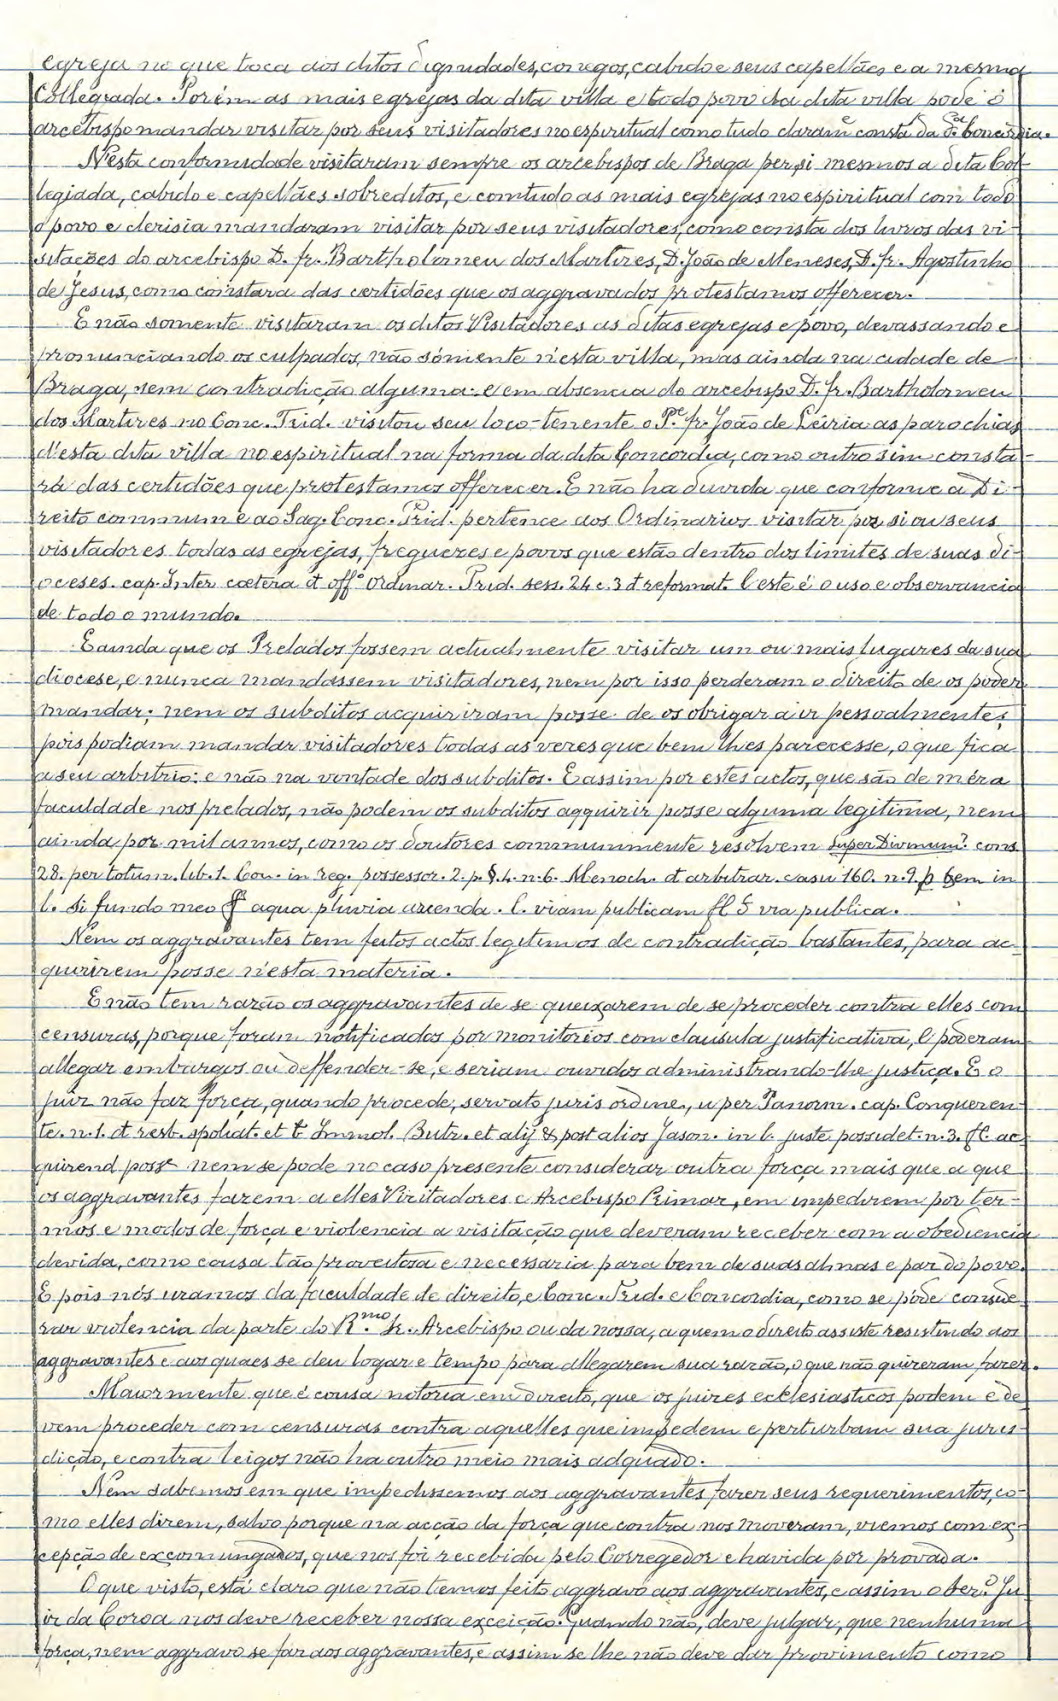 egreja no que toca aos ditos dignidades, conegos, cabido e seus capellães e a mesma
Collegiada. Porém as mais egrejas da dita villa e todo povo da dita villa pode o
arcebispo mandar visitar por seus visitadores no espiritual como tudo claramᵉ consta da dᵃ Concordia.
Nesta conformidade visitaram sempre os arcebispos de Braga per si mesmos a dita Col-
legiada, cabido e capellães sobreditos, e comtudo as mais egrejas no espiritual com todo
o povo e clerisia mandaram visitar por seus visitadores, como consta dos livros das vi-
sitações do arcebispo D. fr. Bartholomeu dos Martires, D. João de Meneses, D. fr. Agostinho
de Jesus, como constara das certidões que os aggravados protestamos offerecer.
E não somente visitaram os ditos Visitadores as ditas egrejas e povo, devassando e
pronunciando os culpados, não sómente n'esta villa, mas ainda na cidade de
Braga, sem contradição alguma: e em absencia do arcebispo D. fr. Bartholomeu
dos Martires no Conc. Trid. visitou seu loco-tenente o Pᵉ. fr. João de Leiria as parochias
d'esta dita villa no espiritual na forma da dita Concordia, como outro sim consta-
rá das certidões que protestamos offerecer. E não ha duvida que conforme a Di-
reito commum e ao Sag. Conc. Trid. pertence aos Ordinarios visitar por si ou seus
visitadores todas as egrejas, freguezes e povos que estão dentro dos limites de suas di-
oceses. cap. Inter cœtera d offº ordinar. Trid. sess. 24 c. 3 d reformat. E este é o uso e observancia
de todo o mundo.
E ainda que os Prelados fossem actualmente visitar um ou mais lugares da sua
diocese, e nunca mandassem visitadores, nem por isso perderam o direito de os poder
mandar; nem os subditos acquiriram posse de os obrigar a ir pessoalmente;
pois podiam mandar visitadores todas as vezes que bem lhes parecesse, o que fica
a seu arbitrio: e não na vontade dos subditos. E assim por estes actos, que são de méra
faculdade nos prelados, não podem os subditos acquirir posse alguma legitima, nem
ainda por mil annos, como os doutores communmente resolvem super Divinum? cons.
28. per totum. lib. 1. Cov. in reg. possessor. 2. p. §. 4. n. 6. Menoch. d arbitrar. casu 160. n. 9. p bem in
l. si fundo meo ff aqua pluvia arcenda. l. viam publicam ff § via publica.
Nem os aggravantes tem feitos actos legitimos de contradição bastantes, para ac-
quirirem posse n'esta materia.
E não tem razão os aggravantes de se queixarem de se proceder contra elles com
censuras, porque foram notificados por monitorios com clausula justificativa, e poderam
allegar embargos ou deffender-se, e seriam ouvidos administrando-lhe justiça. E o
juiz não faz força, quando procede, servato juris ordine, u per Panorm. cap. Conqueren-
te. n. 1. d rest. spoliat. et t Immol. Butr. et alij & post alios Jason. in l. juste possidet. n. 3. ff ac-
quirend poss nem se pode no caso presente considerar outra força mais que a que
os aggravantes fazem a elles Vizitadores e Arcebispo Primaz, em impedirem por ter-
mos e modos de força e violencia a visitação que deveram receber com a obediencia
devida, como cousa tão proveitosa e necessaria para bem de suas almas e paz do povo.
E pois nós uzamos da faculdade de direito, e Conc. Trid. e Concordia, como se póde conside-
rar violencia da parte do R.ᵐᵒ Sr. Arcebispo ou da nossa, a quem o direito assiste resistindo aos
aggravantes e aos quaes se deu logar e tempo para allegarem sua razão, o que não quizeram fazer.
Maiormente que é cousa notoria em direito, que os juizes ecclesiasticos podem e de-
vem proceder com censuras contra aquelles que impedem e perturbam sua juris-
dição, e contra leigos não ha outro meio mais adquado.
Nem sabemos em que impedissemos aos aggravantes fazer seus requerimentos, co-
mo elles dizem, salvo porque na acção da força que contra nos moveram, viemos com ex-
cepção de excomungados, que nos foi recebida pelo Corregedor e havida por provada.
O que visto, está claro que não temos feito aggravo aos aggravantes, e assim o Ser.º Ju-
iz da Coroa nos deve receber nossa exceição. Quando não, deve julgar, que nenhuma
força, nem aggravo se faz aos aggravantes, e assim se lhe não deve dar provimento como